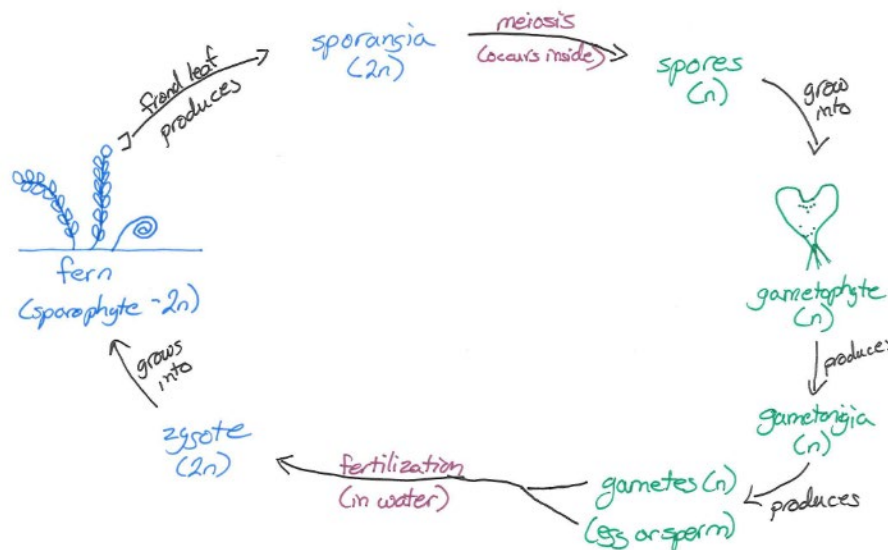 sporangia
(2n)
meiosis
(occurs inside)
spores
(n)
grow
into
gametophyte
(n)
produces
gametangia
(n)
produces
gametes (n)
(egg or sperm)
fertilization
(in water)
zygote
(2n)
grows
into
fern
(sporophyte - 2n)
frond leaf
produces